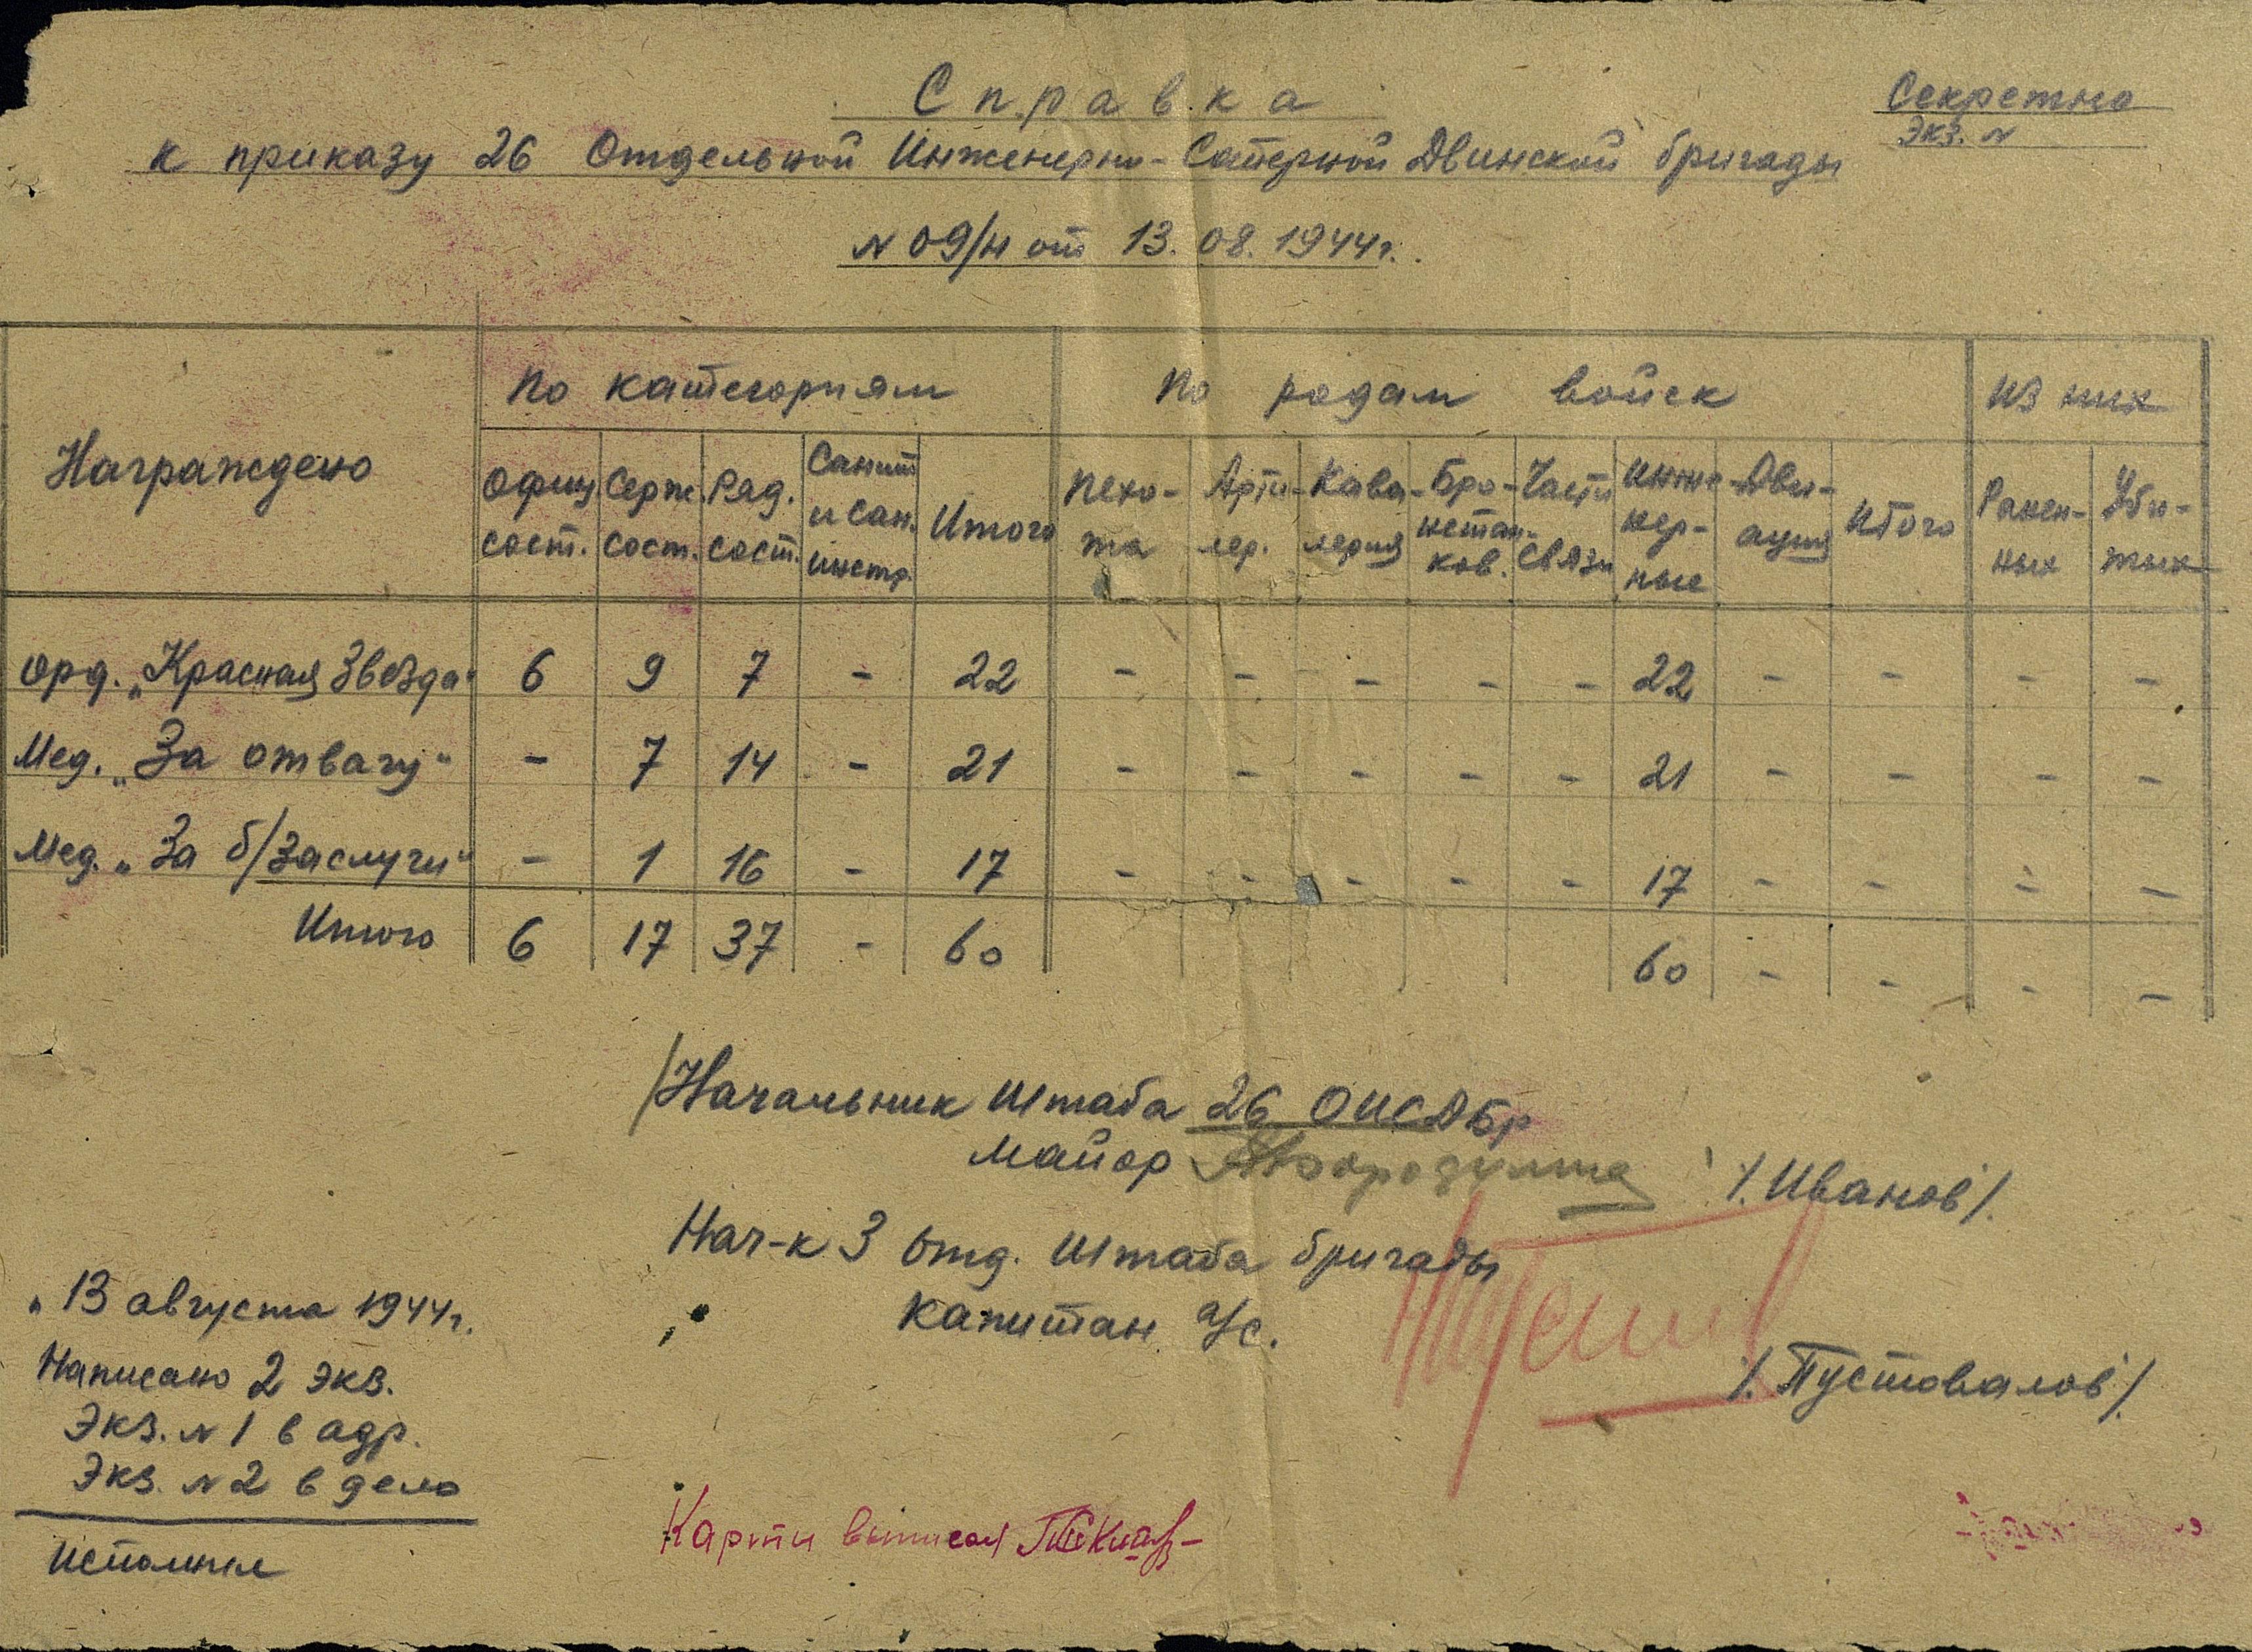 Справка
Секретно
Экз. N
к приказу 26 Отдельной Инженерно-Саперной Двинской бригады
N 09/н от 13.08.1944г.
Награждено
По категориям
По родам войск
Из них
Офиц. сост.
Серж. сост.
Ряд. сост.
Санит. и сан. инстр.
Итого
Пехо-та
Арти-лер.
Кава-лерия
Бро-нетан-ков.
Части связи
Инже-нер-ные
Ави-ация
Итого
Ранен-ных
Уби-тых
Орд. „Красная Звезда“ 6 9 7 - 22 - - - - - 22 - - - -
Мед. „За отвагу“ - 7 14 - 21 - - - - - 21 - - - -
Мед. „За б/заслуги“ - 1 16 - 17 - - - - - 17 - - - -
Итого 6 17 37 - 60 60 - - - -
/Начальник Штаба 26 ОИСДБр
майор /.Иванов/.
Нач-к 3 отд. Штаба бригады
капитан а/с.
/.Пустовалов/.
„13 августа 1944г.
Написано 2 экз.
Экз. N 1 в адр.
Экз. N 2 в дело
Исполнил
Карти выписал